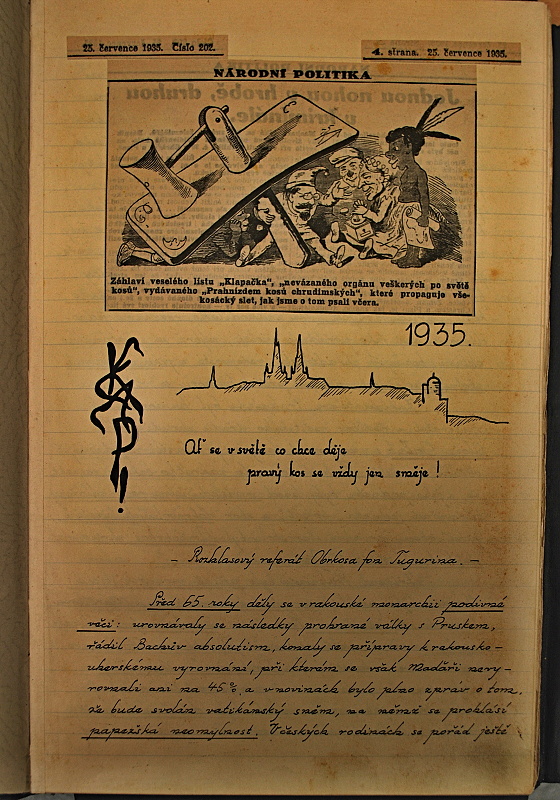 25. července 1935. Číslo 202.
4. strana. 25. července 1935.
NÁRODNÍ POLITIKA
Záhlaví veselého listu „Klapačka“, „nevázaného orgánu veškerých po světě
kosů“, vydávaného „Prahnízdem kosů chrudimských“, které propaguje vše-
kosácký slet, jak jsme o tom psali včera.
1935.
Ať se v světě co chce děje
pravý kos se vždy jen směje!
- Rozhlasový referát Obrkosa fon Tugurina. -
Před 65. roky děly se v rakouské monarchii podivné
věci: urovnávaly se následky prohrané války s Pruskem,
řádil Bachův absolutism, konaly se přípravy k rakousko-
uherskému vyrovnání, při kterém se však Maďaři nevy-
rovnali ani na 45% a v novinách bylo plno zpráv o tom,
že bude svolán vatikánský sněm, na němž se prohlásí
papežská neomylnost. V českých rodinách se pořád ještě